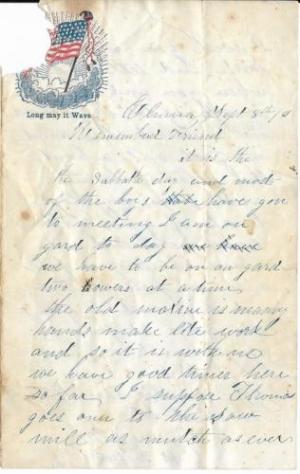 Long may it Wave
Elmira Sept 8th
Remembered Friend
it is the
the Sabbath day and most
of the boys have gon
to meeting I am on
gard to day
we have to be on on gard
two howers at a time
the old maxim is many
hands make lite work
and so it is with us
we have good times here
so far I suppose Thomas
goes over to the saw
mill as mutch as ever